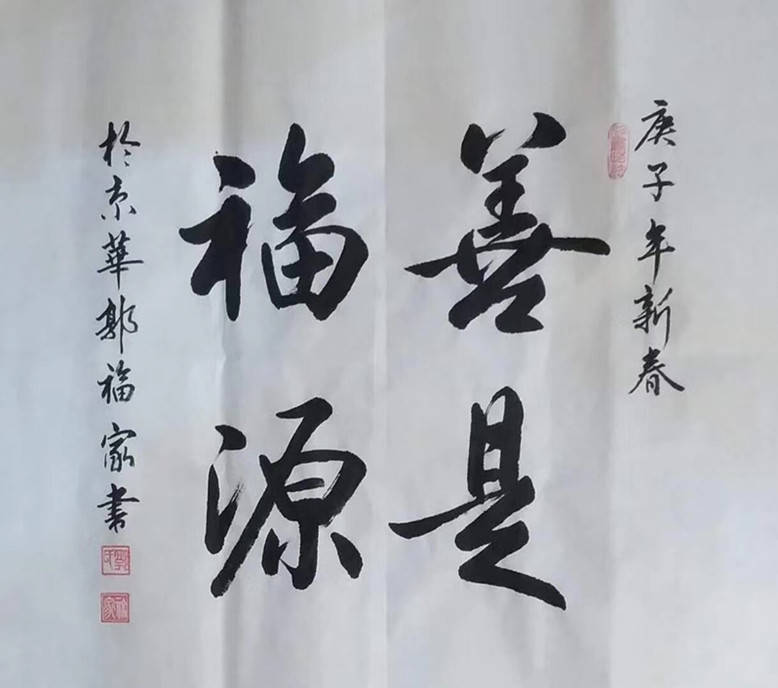 庚子年新春
善是
福源
於京華郭福家書